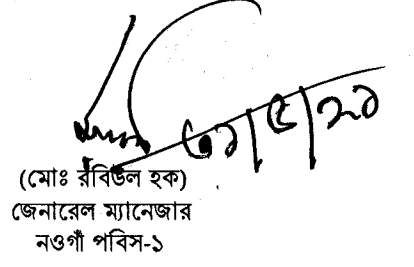 ৩১|৫|২১
(মোঃ রবিউল হক)
জেনারেল ম্যানেজার
নওগাঁ পবিস-১